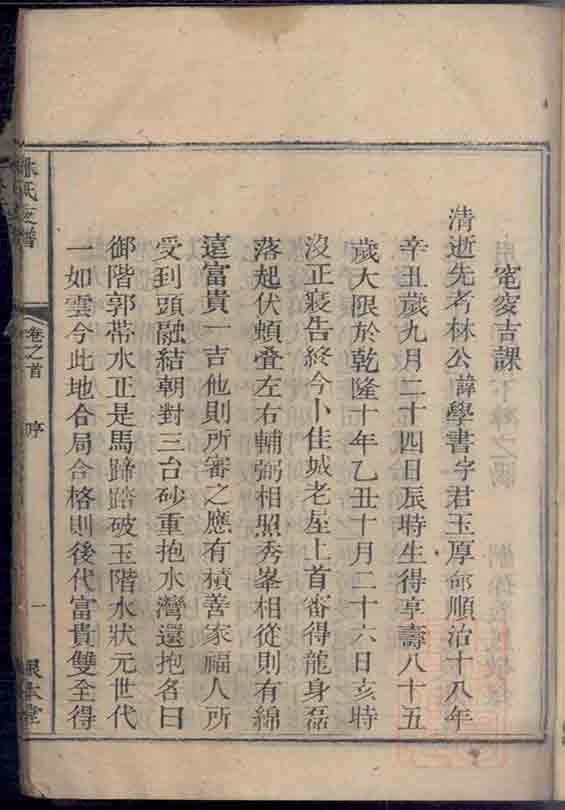 窀窆吉課
清逝先考林公諱學書字君玉厚命順治十八年
辛丑歲九月二十四日辰時生得享壽八十五
歲大限於乾隆十年乙丑十月二十六日亥時
沒正寢告終今卜佳城老屋上首審得龍身磊
落起伏頓叠左右輔弼相照秀峯相從則有綿
遠富貴一吉他則所審之應有積善家福人所
受到頭融結朝對三台砂重抱水灣還抱名曰
御階郭帶水正是馬蹄踏破玉階水狀元世代
一如雲今此地合局合格則後代富貴雙全得
林氏支譜
卷之首
序
一
本堂